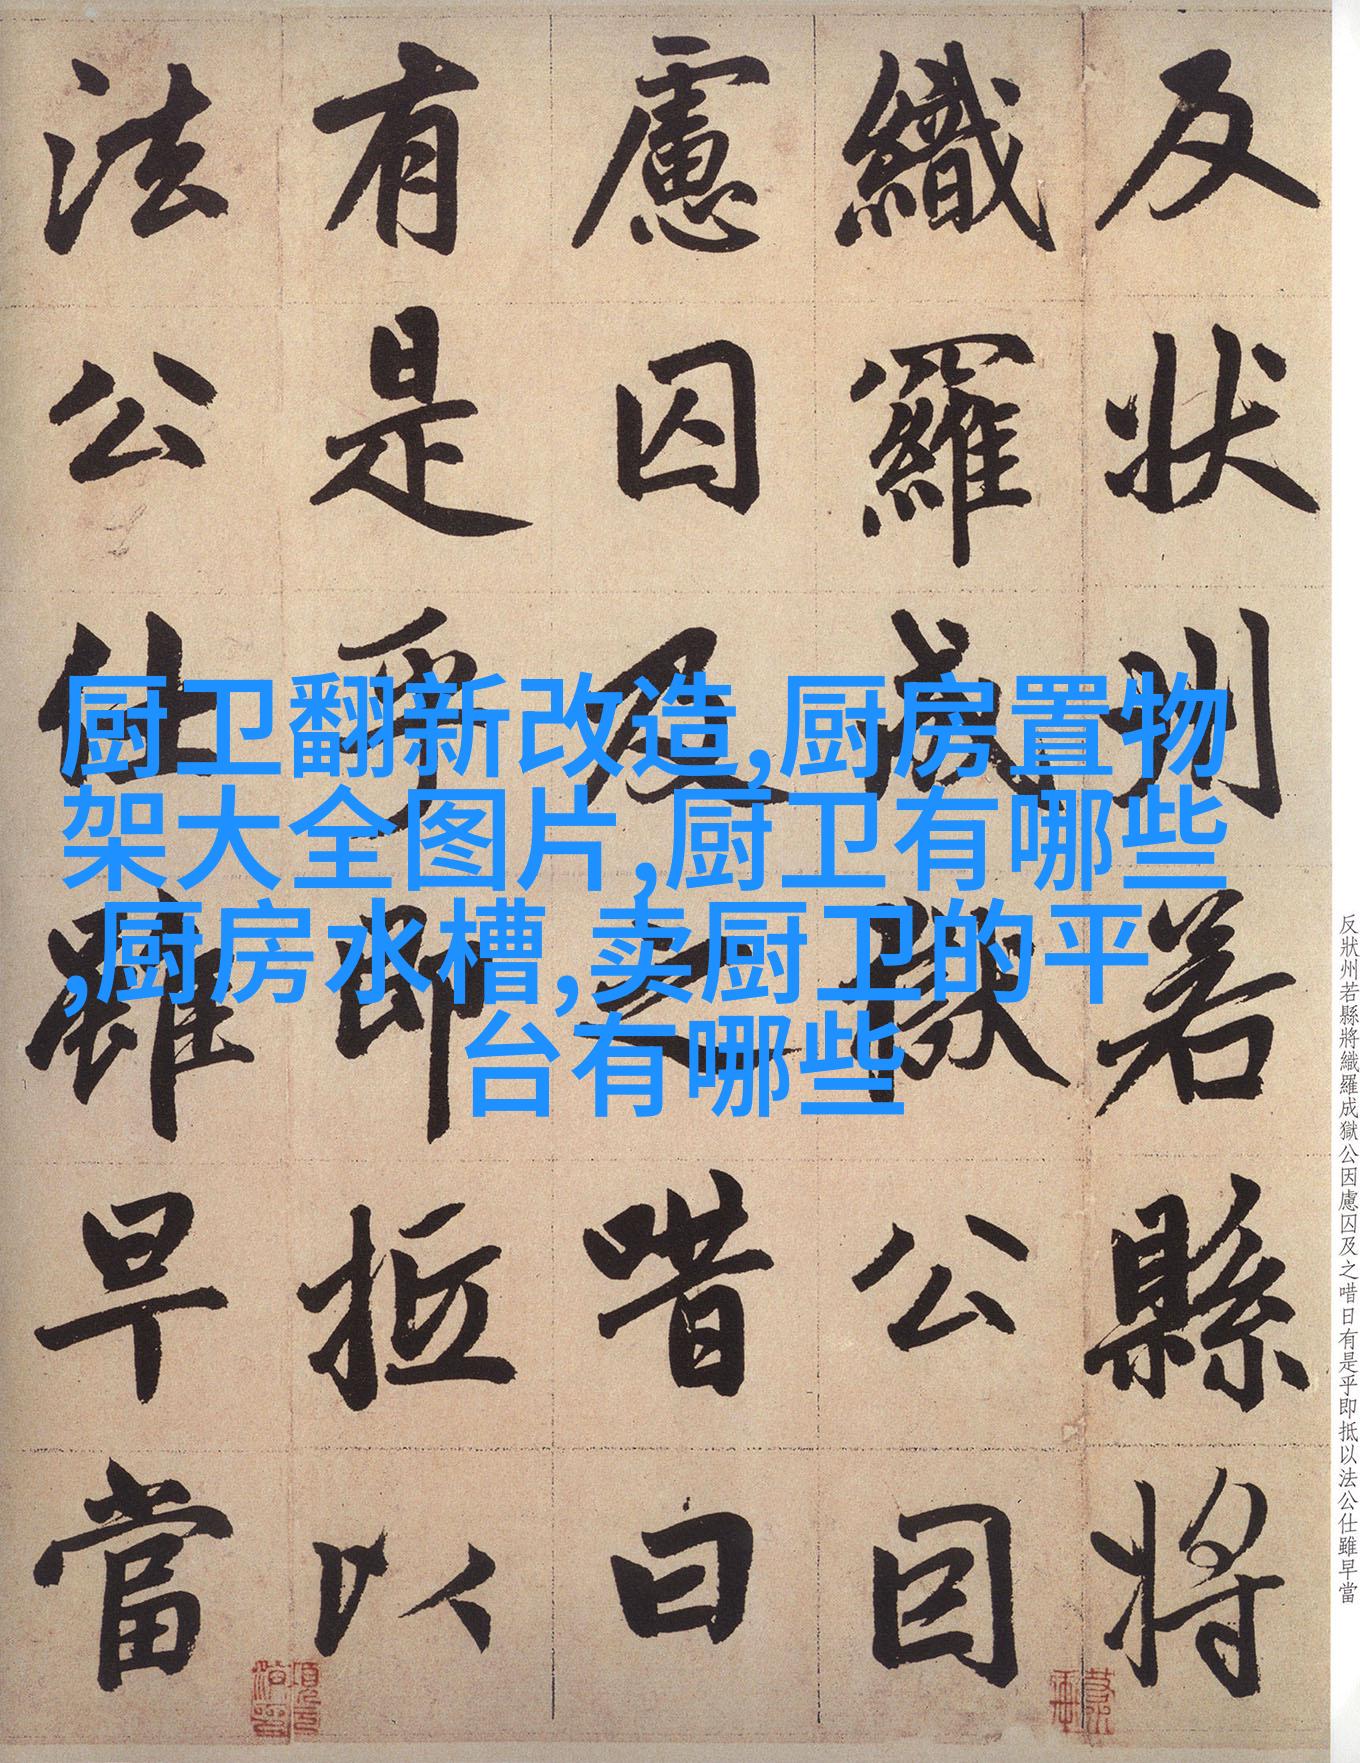 反状州若縣將
織羅成獄公因
慮囚及之唶曰
有是乎即抵以
法公仕雖早當
厨卫翻新改造,厨房置物
架大全图片,厨卫有哪些
,厨房水槽,卖厨卫的平
台有哪些
反狀州若縣將織羅成獄公因慮囚及之唶日有是乎即抵以法公仕雖早當